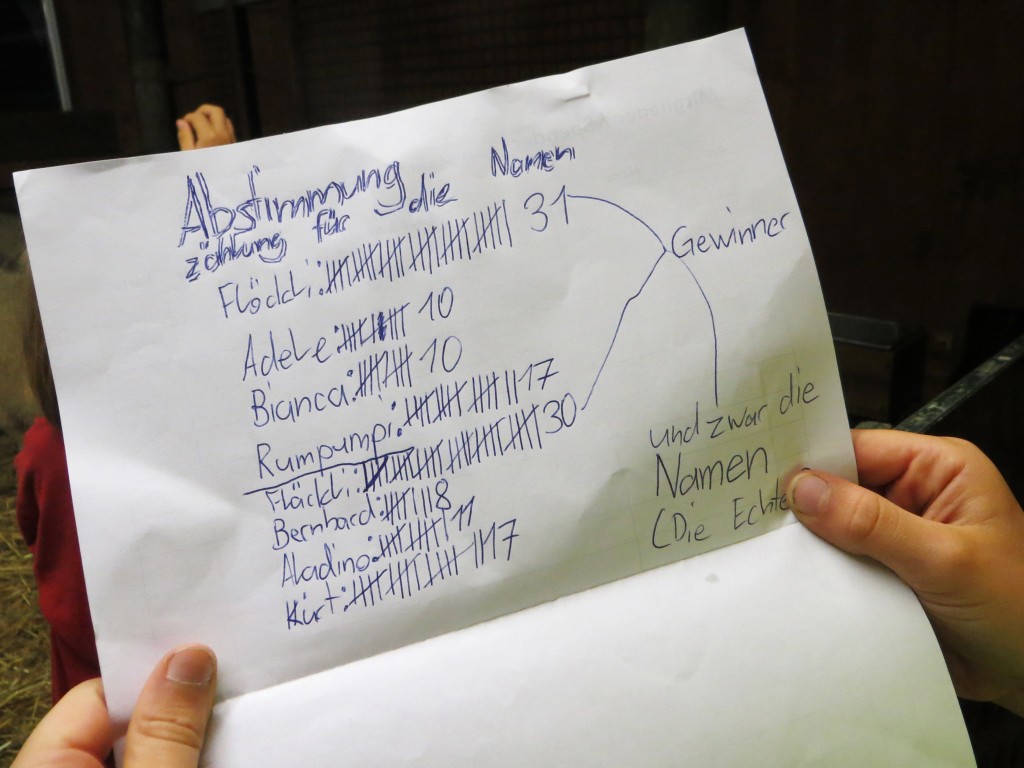 Abstimmung
zählung für die Namen
Flöckli: 31
Adele: 10
Bianca: 10
Rumpumpi: 17
Fläckli: 30
Bernhard: 8
Aladino: 11
Kürt: 17
Gewinner
und zwar die
Namen
(Die Echte